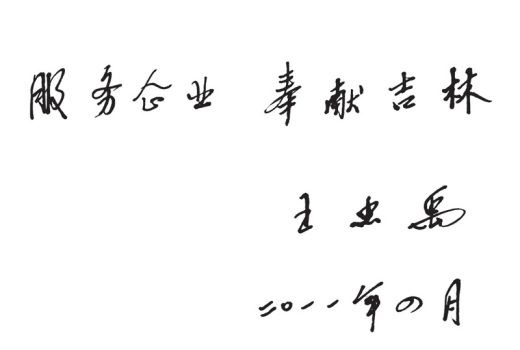 服务企业 奉献吉林
王忠禹
二〇一一年四月